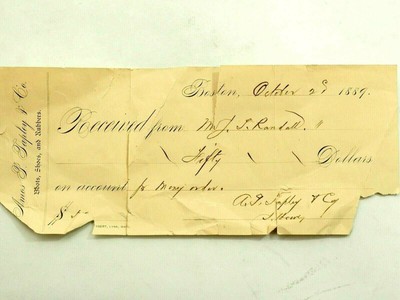 Amos P. Tapley & Co.
Boots, Shoes, and Rubbers.
Boston, October 2d 1889.
Received from Mr J. T. Randall.
Fifty Dollars
on account for Mony order.
$50
A. P. Tapley & Co